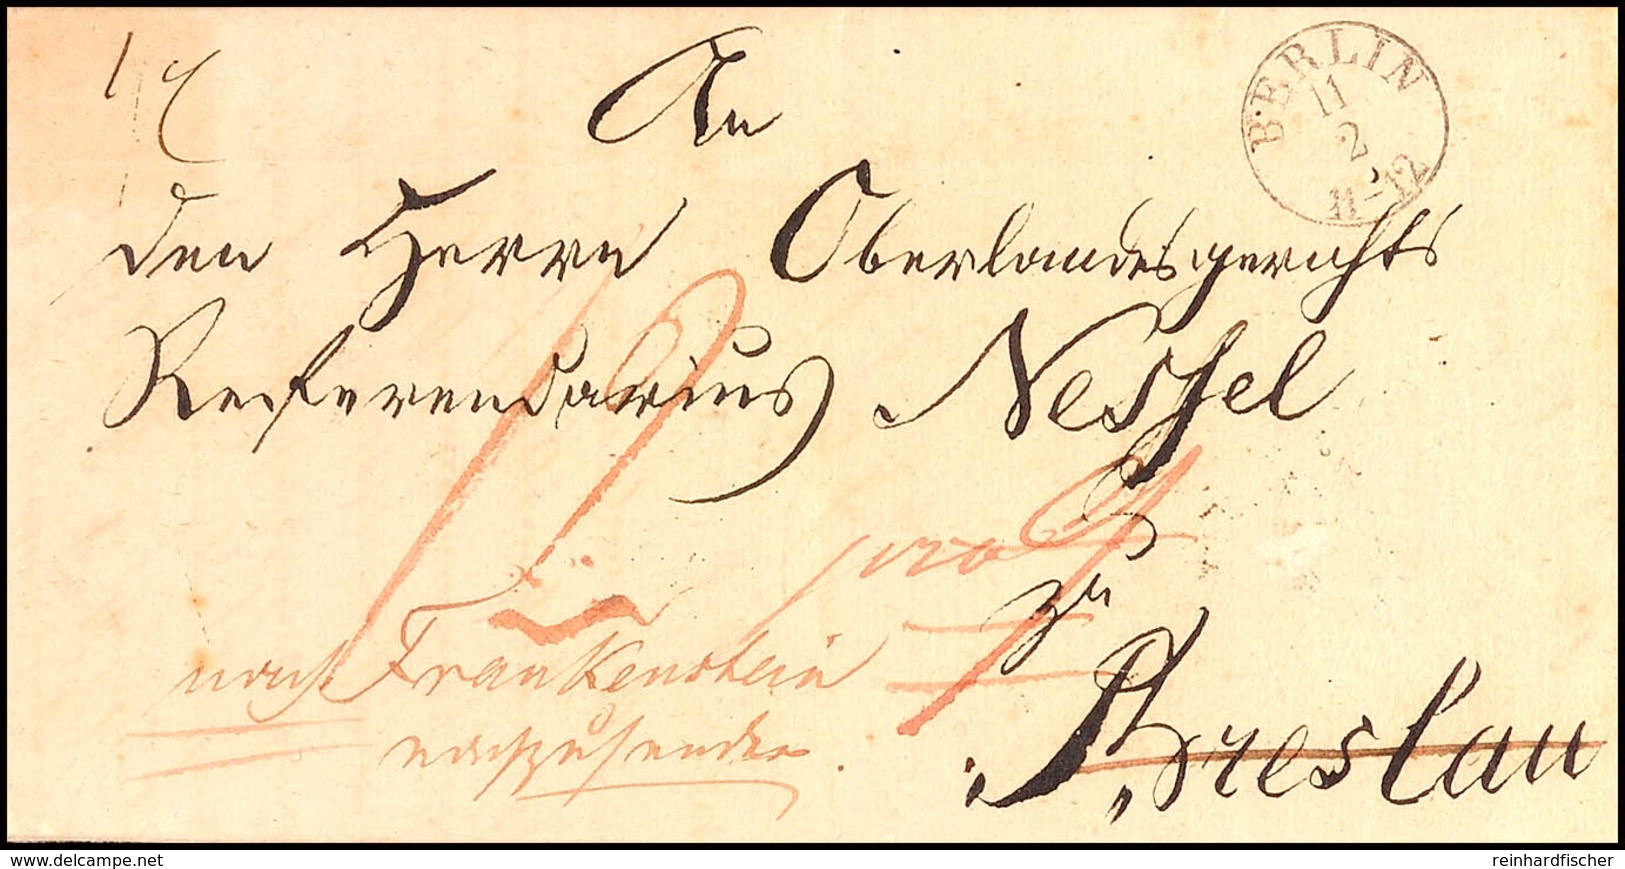 An
BERLIN
11
2
11-12
den Herrn Oberlandesgerichts
Referendarius Nessel
zu
Breslau
nach Frankenstein
nachzusenden
www.delcampe.net
reinhardfischer